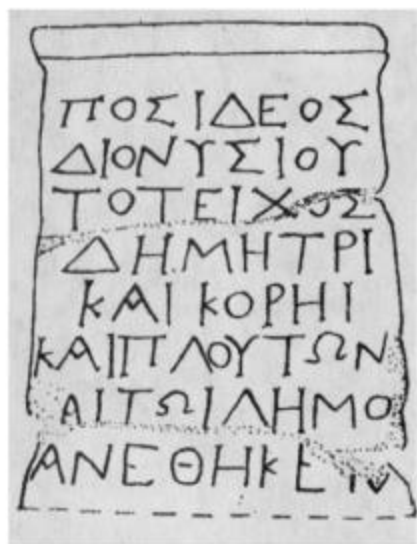 ΠΟΣΙΔΕΟΣ
ΔΙΟΝΥΣΙΟΥ
ΤΟΤΕΙΧΟΣ
ΔΗΜΗΤΡΙ
ΚΑΙ ΚΟΡΗΙ
ΚΑΙΠΛΟΥΤΩΝ
ΑΙΤΩΙΔΗΜΟ
ΑΝΕΘΗΚΕΝ